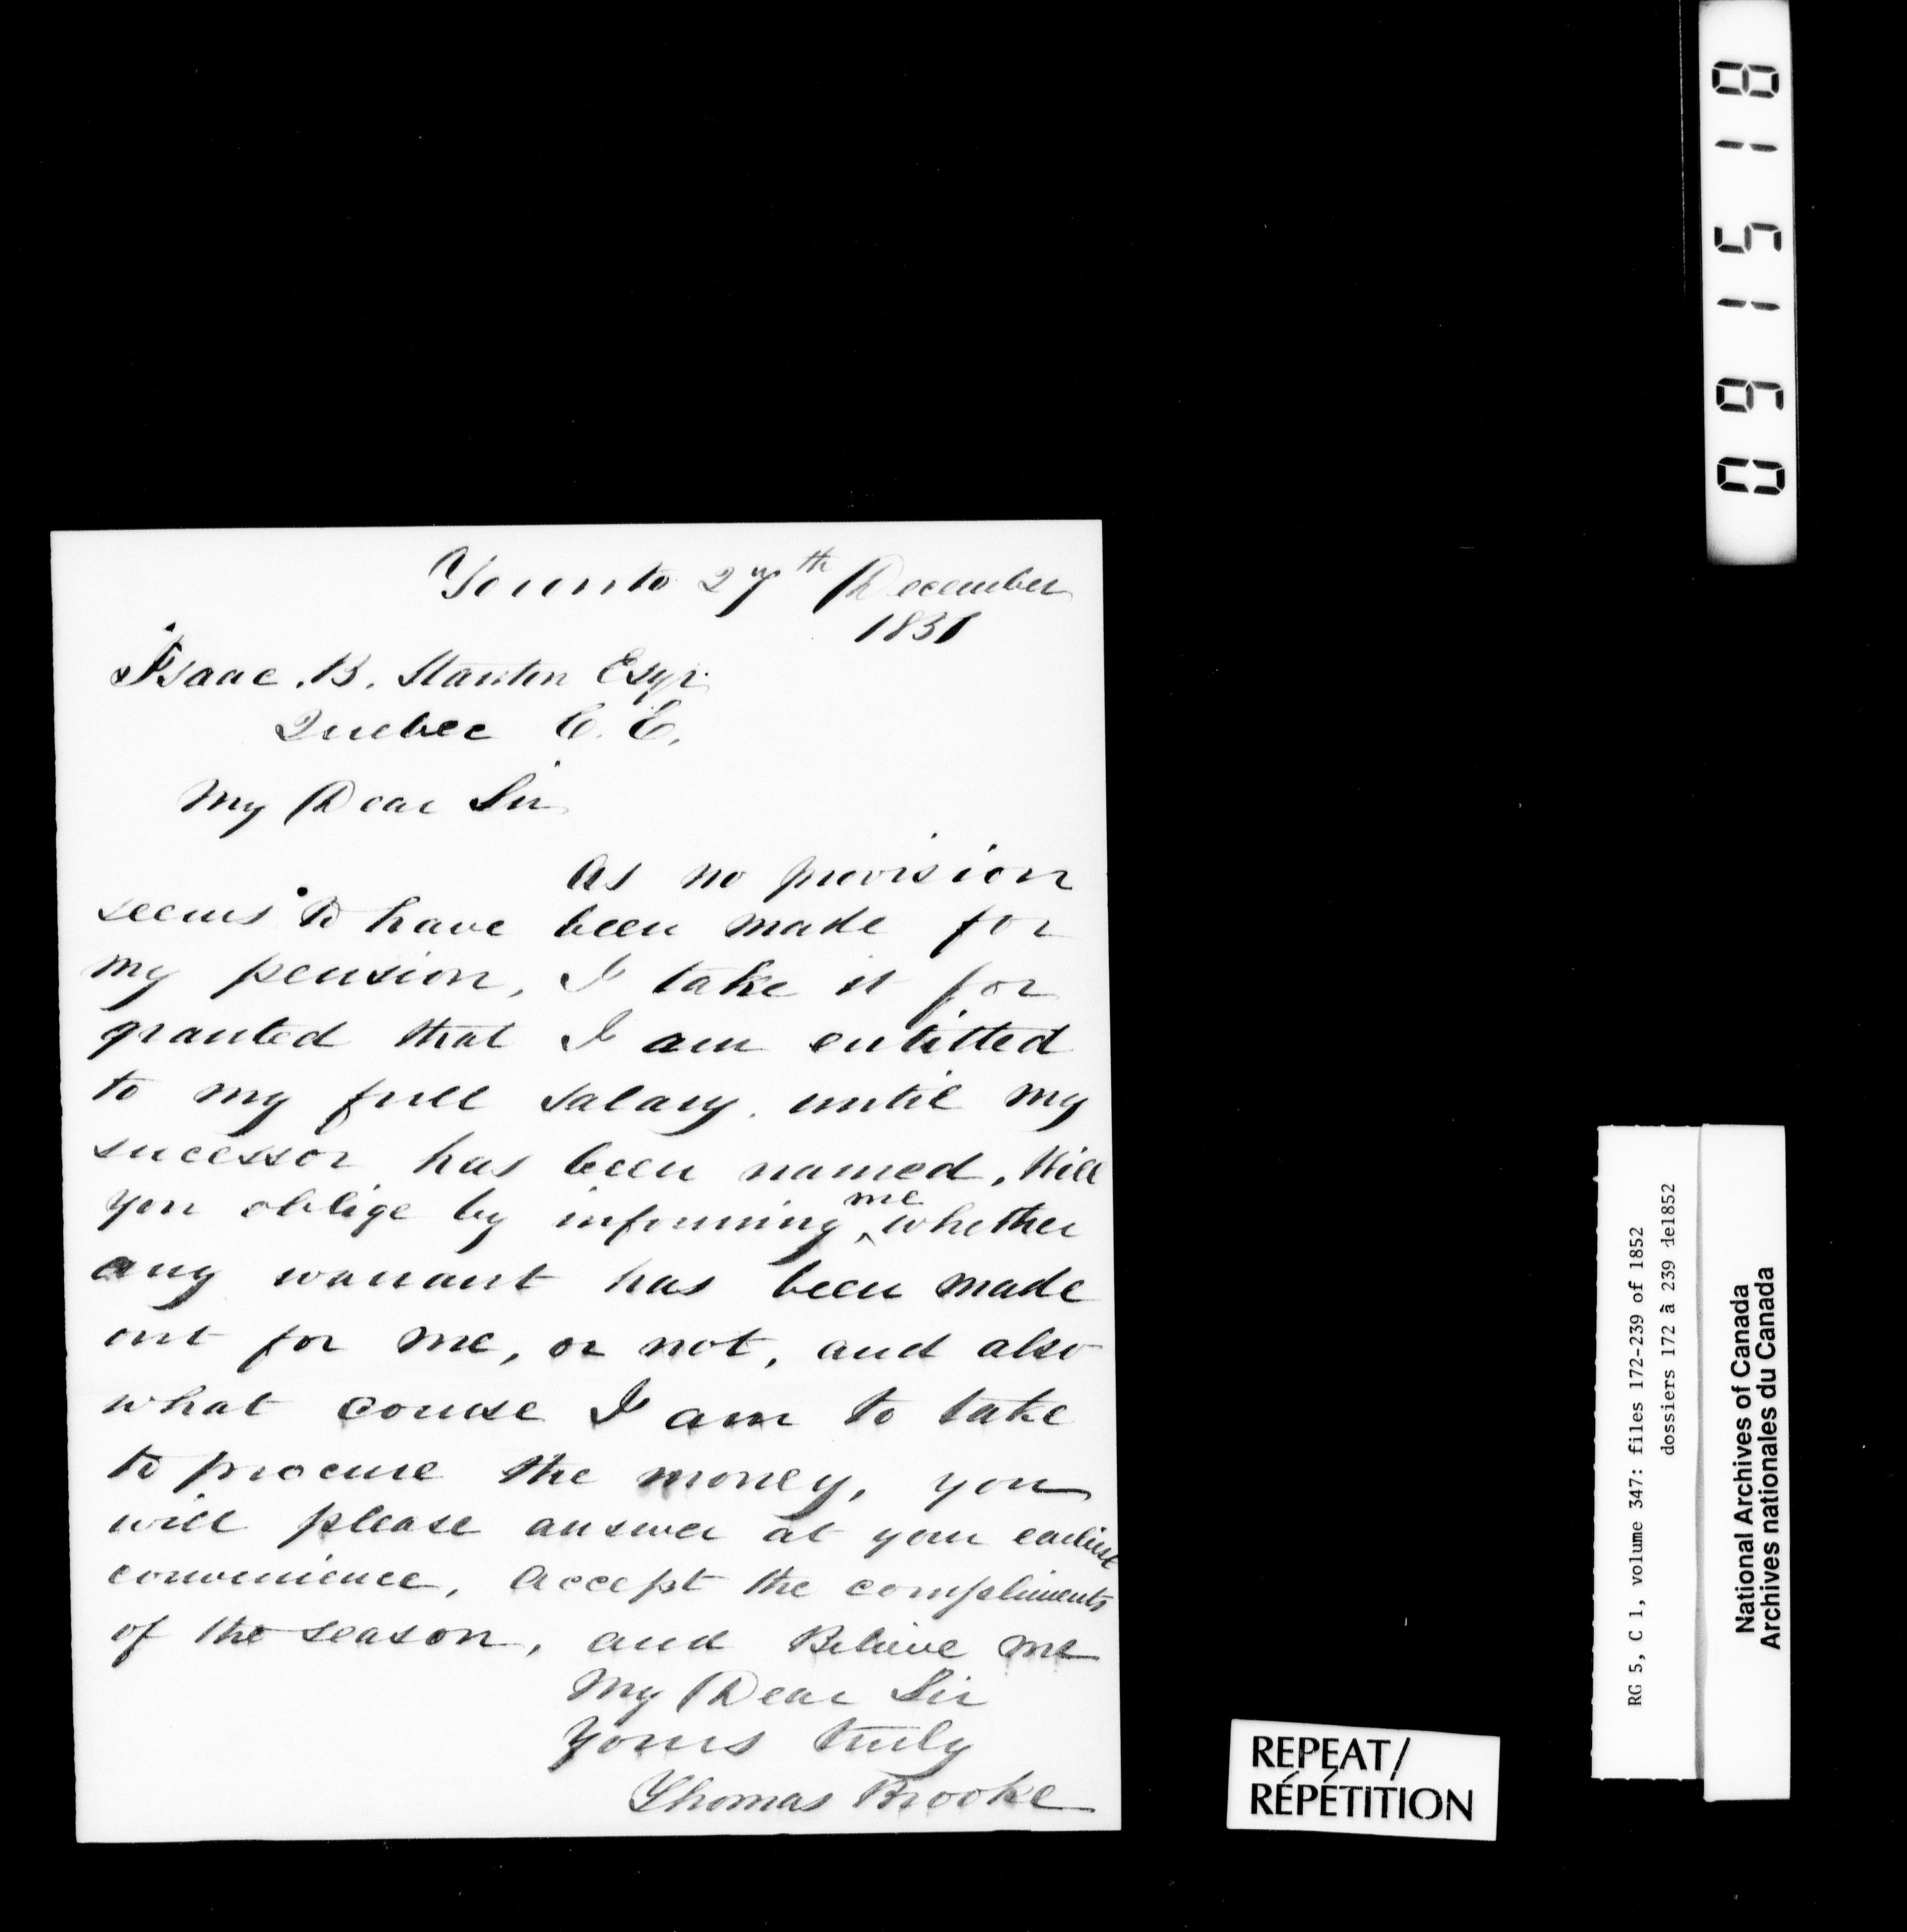 Toronto 27th December
1851
Isaac. B. Stanton Esqr.
Quebec C. E.
My Dear Sir
As no provision
seems to have been made for
my pension, I take it for
granted that I am entitted
to my full salary. until my
sucessor has been named. Will
you oblige by informing me whether
any warrant has been made
out for me, or not, and also
what course I am to take
to procure the money, you
will please answer at your earliest
convenience, Accept the compliments
of the season, and Believe me
My Dear Sir
Yours truly
Thomas Brooke
091518
RG 5, C 1, volume 347: files 172-239 of 1852
dossiers 172 à 239 de1852
National Archives of Canada
Archives nationales du Canada
REPEAT/
RÉPÉTITION